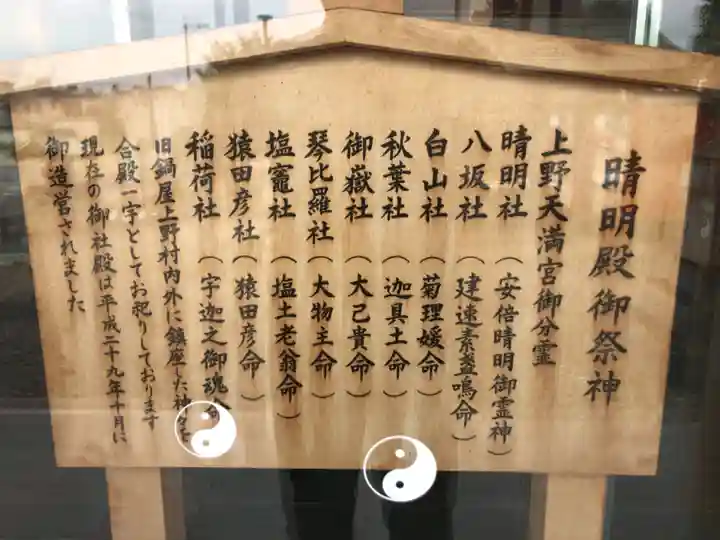 晴明殿御祭神
上野天満宮御分霊
晴明社（安倍晴明御霊神）
八坂社（建速素盞鳴命）
白山社（菊理媛命）
秋葉社（迦具土命）
御嶽社（大己貴命）
琴比羅社（大物主命）
塩竈社（塩土老翁命）
猿田彦社（猿田彦命）
稲荷社（宇迦之御魂命
旧鍋屋上野村内外に鎮座した神々を
合殿一宇としてお祀りしております
現在の御社殿は平成二十九年十月に
御造営されました